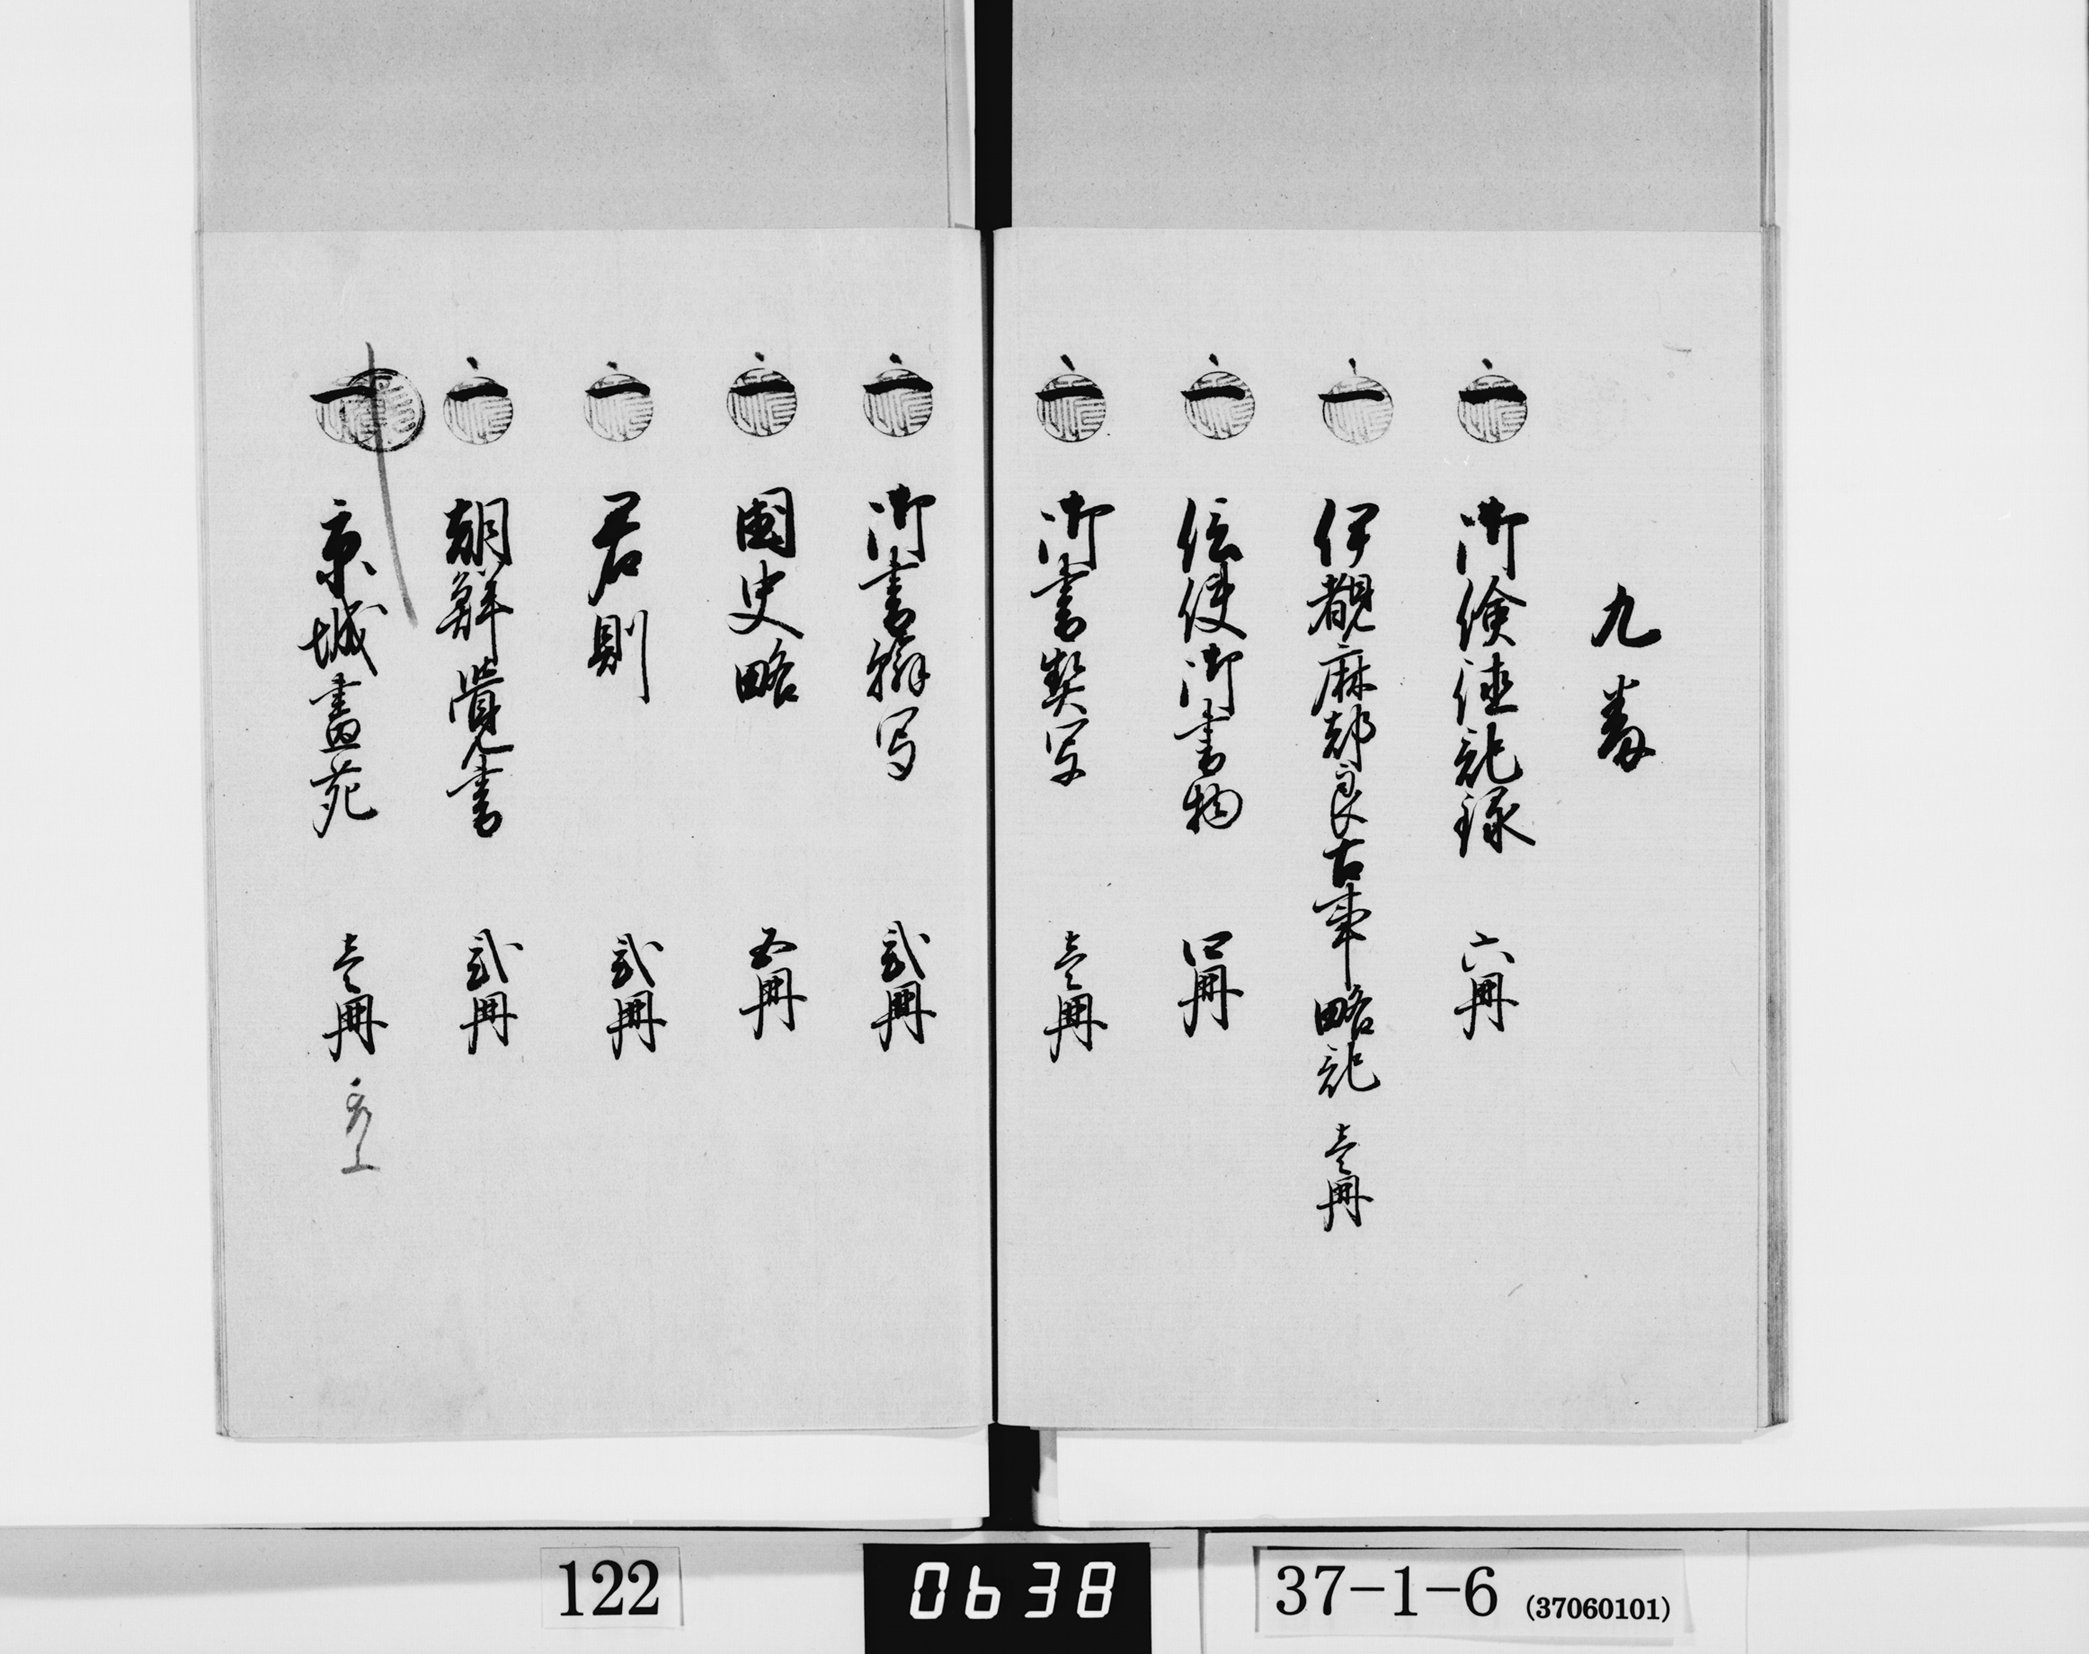 九番
一 御倹徳記録 六冊
一 伊覩麻都良古事略記 壱冊
一 信使御書物 四冊
一 御書契写 壱冊
一 御書翰写 弐冊
一 國史略 五冊
一 君則 弐冊
一 朝鮮覚書 弐冊
一 京城畫苑 壱冊
122
0638
37-1-6 (37060101)